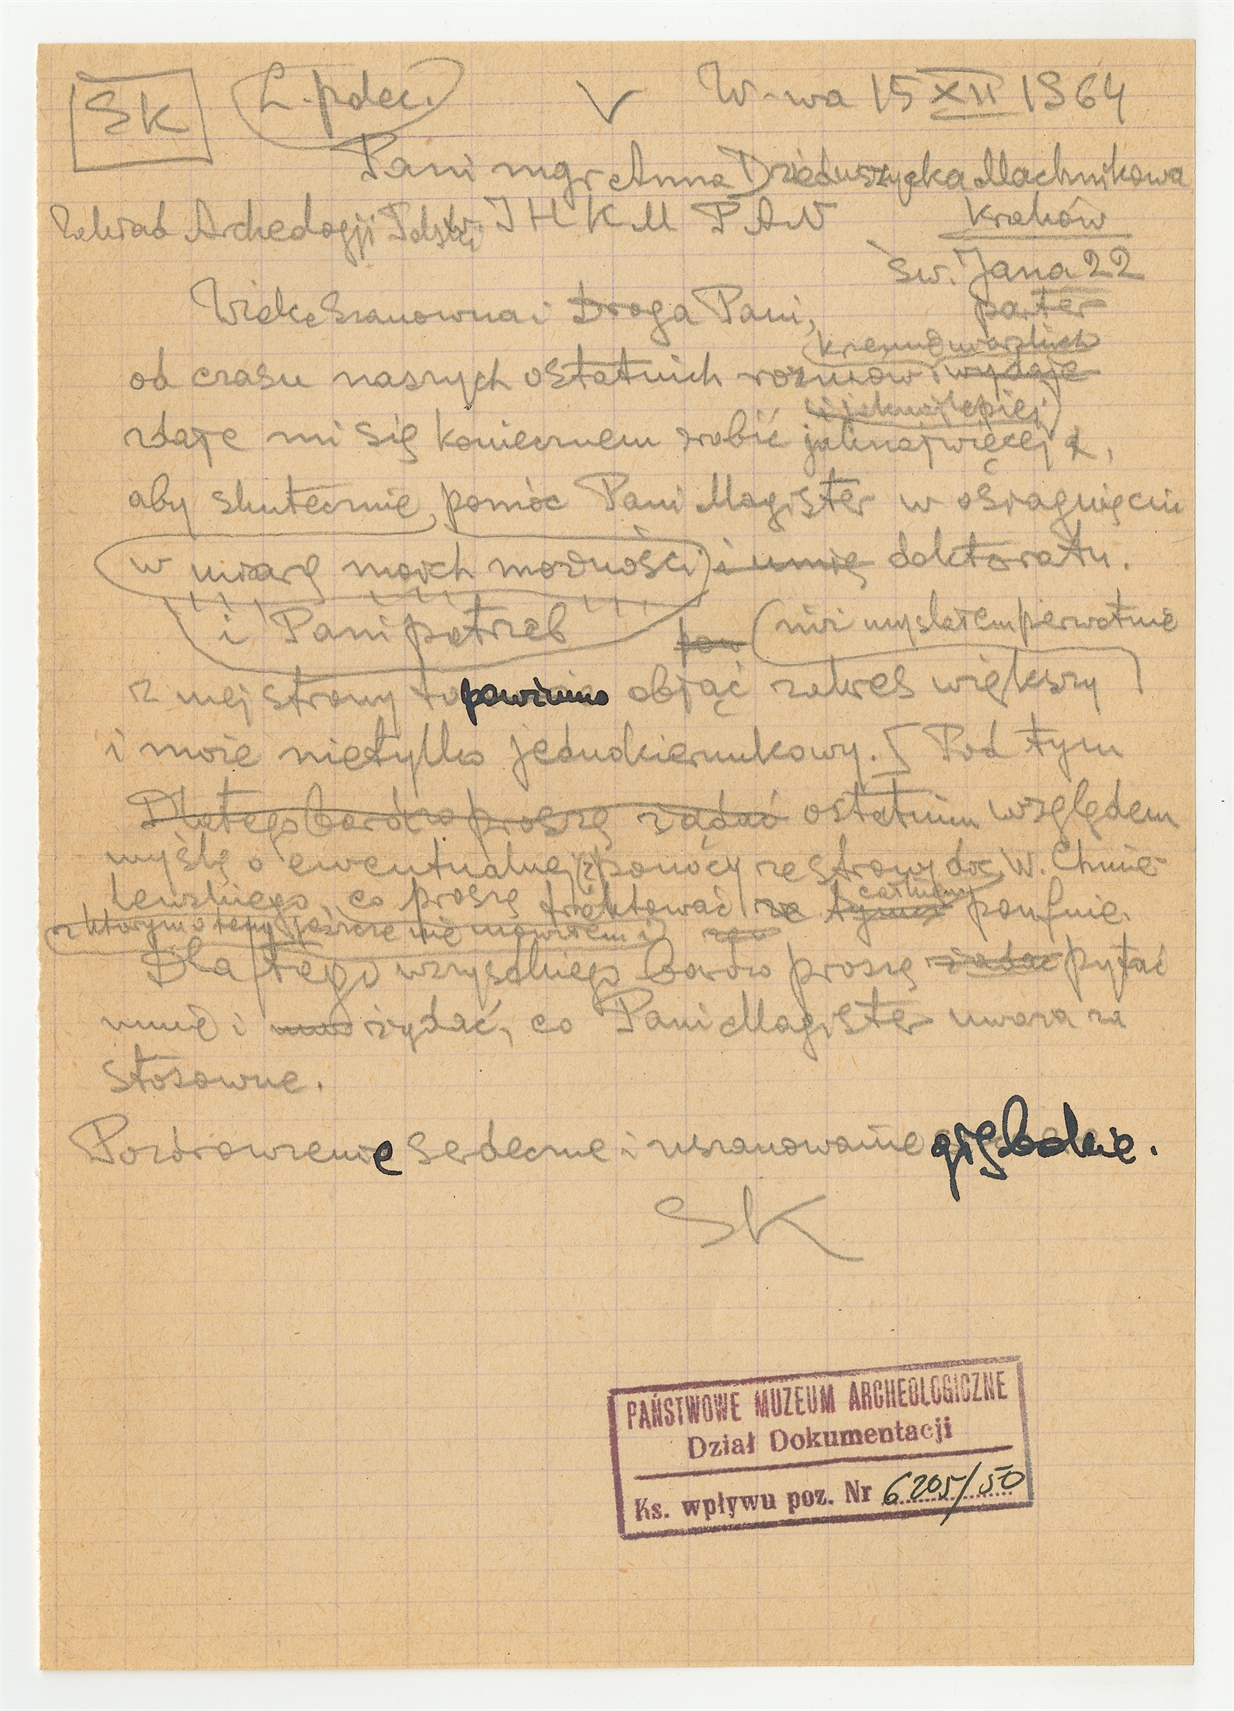 SK L. polec. V W-wa 15 XII 1964
Pani mgr Anna Dzieduszycka Machnikowa
Zakład Archeologji Polski IHKM PAN Kraków
św. Jana 22
parter
Wielce Szanowna i Droga Pani,
krzemionkarskich
od czasu naszych ostatnich rozmów wydaje
i jaknajlepiej
zdaje mi się koniecznem zrobić jaknajwięcej,
aby skutecznie pomóc Pani Magister w osiągnięciu
w miarę moich możności i umię doktoratu.
i Pani potrzeb
pow niż myślałem pierwotnie
z mej strony to powinno objąć zakres większy
i może nietylko jednokierunkowy. [Pod tym
Dlatego bardzo proszę żądać ostatnim względem
myślę o ewentualnej pomocy ze strony doc. W. Chmie-
lewskiego, co proszę traktować za całkiem poufnie.
z którym o tem jeszcze nie mówiłem
Dla tego wszystkiego bardzo proszę żądać pytać
mnie i żądać, co Pani Magister uważa za
stosowne.
Pozdrowienie serdeczne i uszanowanie głębokie.
SK
PAŃSTWOWE MUZEUM ARCHEOLOGICZNE
Dział Dokumentacji
Ks. wpływu poz. Nr 6205/50